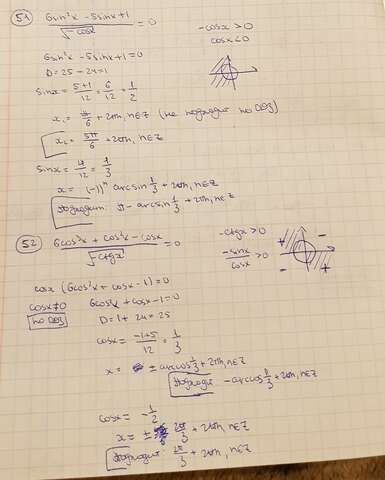 51) (6sin²x - 5sinx + 1)/√(-cosx) = 0
-cosx > 0
cosx < 0
6sin²x - 5sinx + 1 = 0
D = 25 - 24 = 1
sinx = (5+1)/12 = 6/12 = 1/2
x₁ = π/6 + 2πn, n∈Z (не подходит по ОДЗ)
x₂ = 5π/6 + 2πn, n∈Z
sinx = 4/12 = 1/3
x = (-1)ⁿ arcsin 1/3 + 2πn, n∈Z
Подходит π - arcsin 1/3 + 2πn, n∈Z
52) (6cos³x + cos²x - cosx)/√(-ctgx) = 0
-ctgx > 0
-sinx/cosx > 0
- + - +
cosx (6cos²x + cosx - 1) = 0
cosx ≠ 0
по ОДЗ
6cos²x + cosx - 1 = 0
D = 1 + 24 = 25
cosx = (-1+5)/12 = 1/3
x = ± arccos 1/3 + 2πn, n∈Z
Подходит - arccos 1/3 + 2πn, n∈Z
cosx = -1/2
x = ± 2π/3 + 2πn, n∈Z
Подходит 2π/3 + 2πn, n∈Z